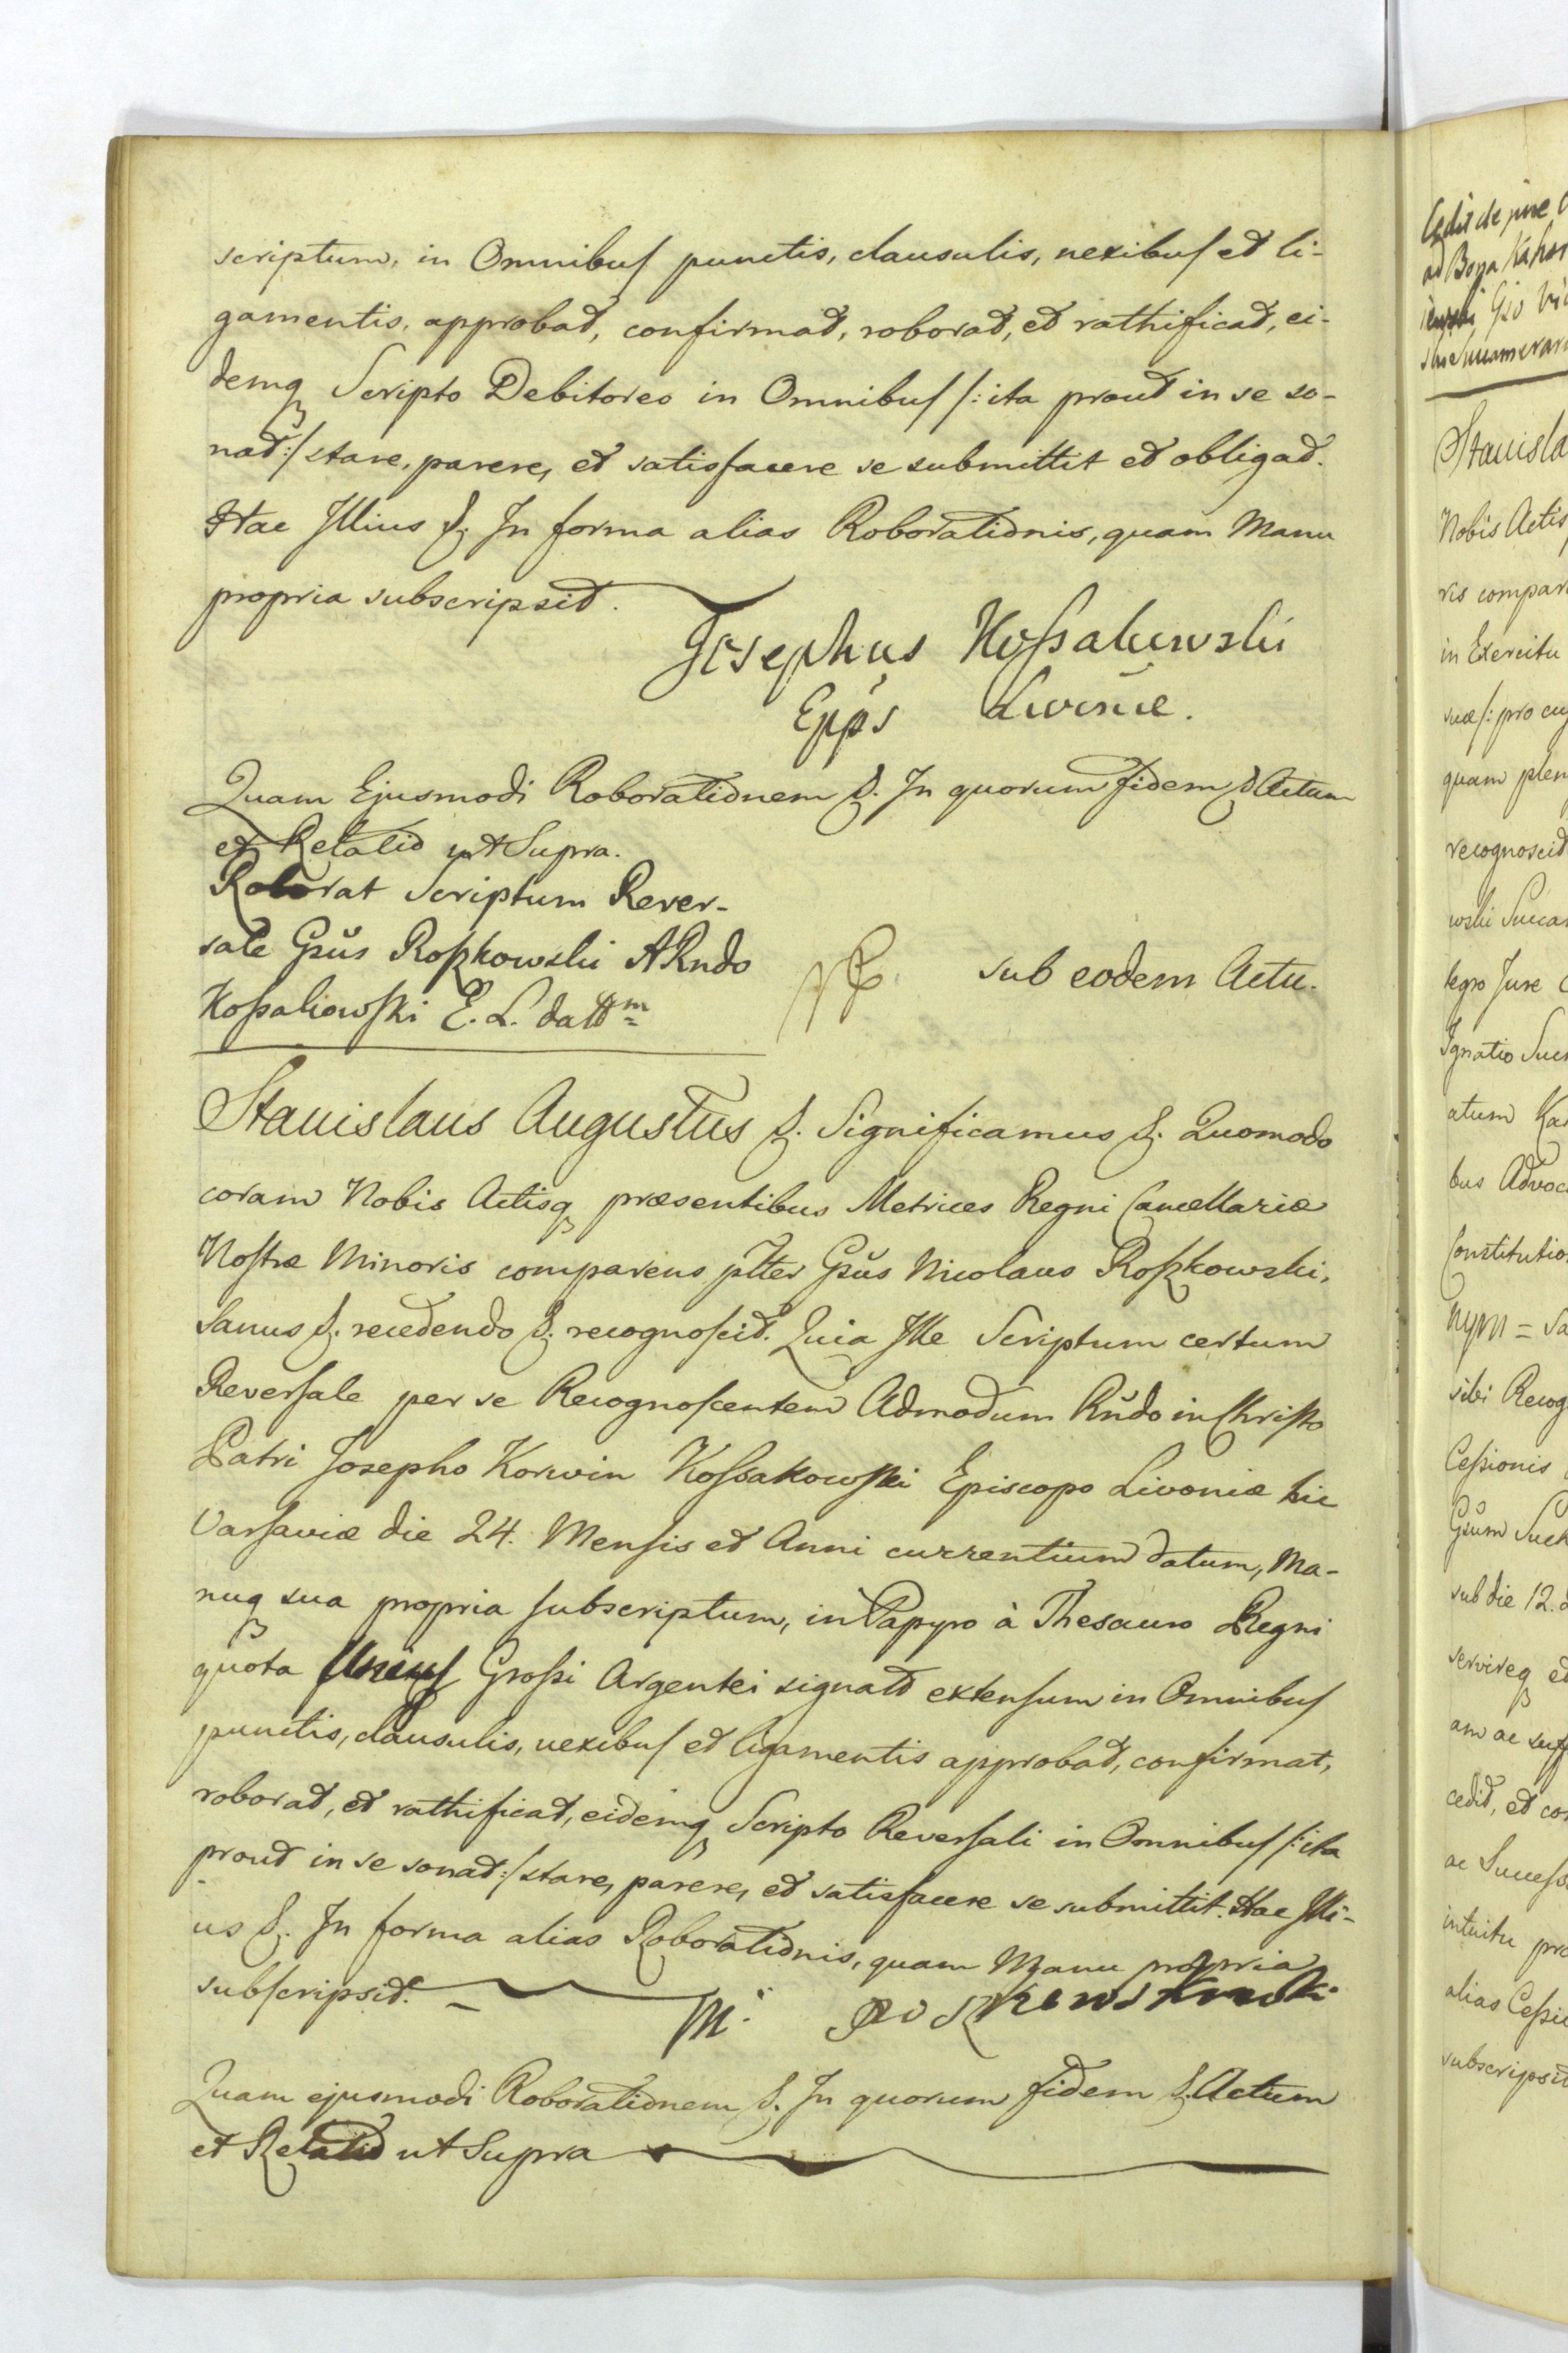 scriptum, in Omnibus punctis, clausulis, nexibus et li-
gamentis, approbat, confirmat, roborat, et rathificat, ei-
demq Scripto Debitoreo in Omnibus /: ita prout in se so-
nat :/ stare, parere, et satisfacere se submittit et obligat.
Hac Illius &. In forma alias Roborationis, quam Manu
propria subscripsit.
Josephus Kossakowski
Epp̃s Livoniæ.
Quam Ejusmodi Roborationem &. In quorum fidem & Actum
et Relatio ut Supra.
Roborat Scriptum Rever-
sale Gsũs Roszkowski A Rndo
Kossakowski E. L. datt m
sub eodem Actu.
Stanislaus Augustus &. Significamus &. Quomodo
coram Nobis Actisq præsentibus Metrices Regni Cancellariæ
Nostræ Minoris comparens pltter Gsũs Nicolaus Roszkowski,
Sanus &. recedendo &. recognoscit. Quia Ille Scriptum certum
Reversale per se Recognoscentem Admodum Rũdo in Christo
Patri Josepho Korwin Kossakowski Episcopo Livoniæ hic
Varsaviæ die 24. Mensis et Anni currentium datum, Ma-
nuq sua propria subscriptum, in Papyro à Thesauro Regni
quota Unius Grossi Argentei signato extensum in Omnibus
punctis, clausulis, nexibus et ligamentis approbat, confirmat,
roborat, et rathificat, eidemq Scripto Reversali in Omnibus /: ita
prout in se sonat :/ stare, parere, et satisfacere se submittit. Hac Illi-
us &. In forma alias Roborationis, quam Manu propria
subscripsit.
M.
Quam ejusmodi Roborationem &. In quorum fidem &. Actum
et Relatio ut Supra
Stanisla
Nobis Actis
ris compar
in Exercitu
suæ /: pro cuj
quam plen
recognoscit
wski Succa
legro Jure
Ignatio Such
atum
bus Advoc
Constitutio
sibi Recog
Cessionis
Gsum Such
sub die 12.
servireq et
am ac suff
cedit, et co
ac Success
intuitu pro
alias Cessi
subscripsit